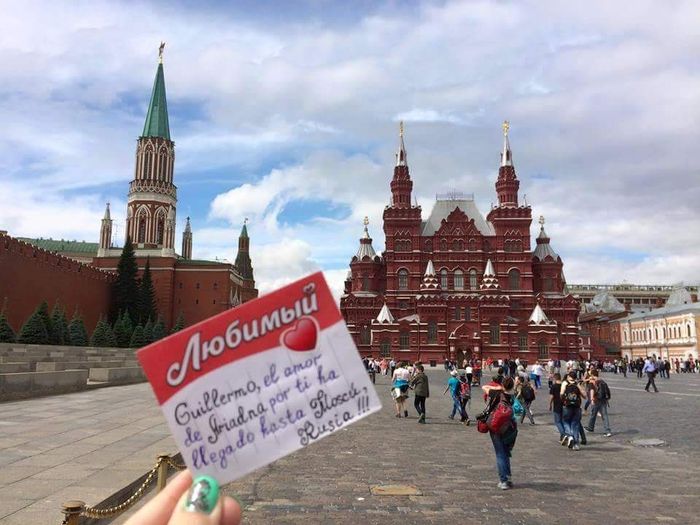 Любимый
Guillermo, el amor
de Ariadna por ti ha
llegado hasta Moscú,
Rusia !!!